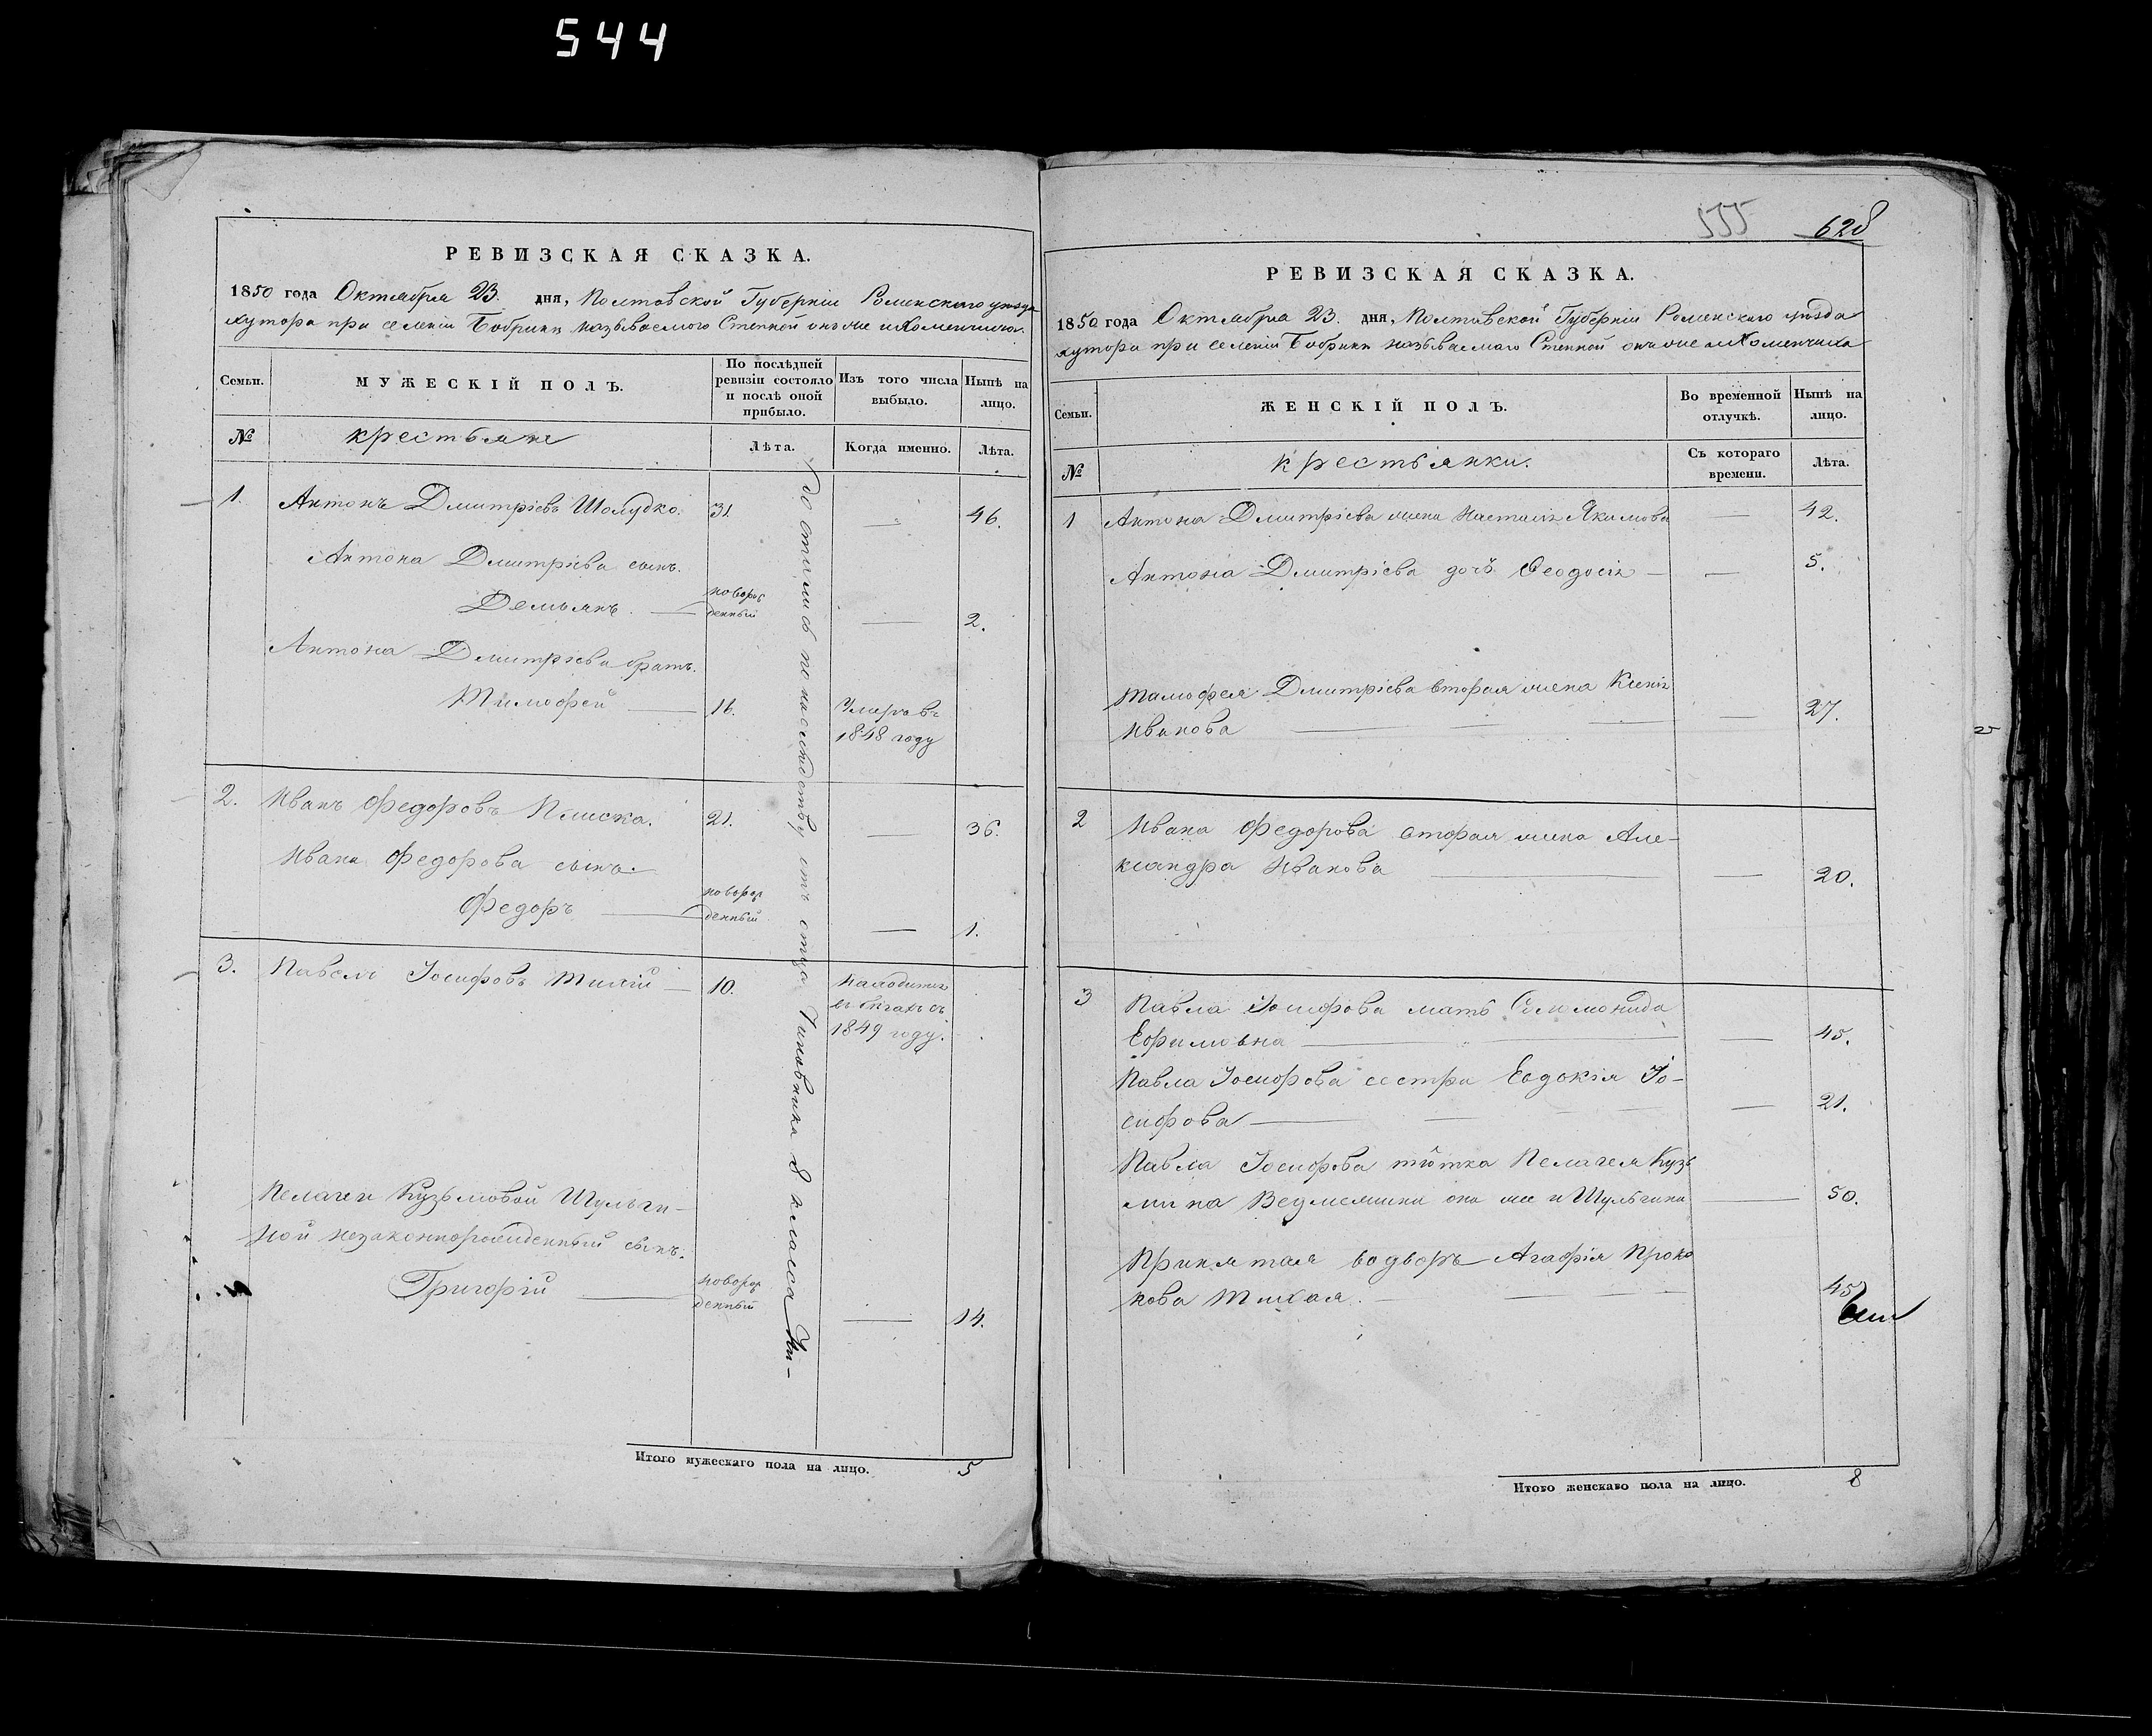 544
РЕВИЗСКАЯ СКАЗКА.
1850 года Октября 23. дня, Полтавской Губерніи Роменскаго уѣзда
хутора при селеніи Бобрики называемого Степной онъ же и Хоменчиха
Семьи.
МУЖЕСКІЙ ПОЛЪ.
По послѣдней ревизіи состояло и послѣ оной прибыло.
Изъ того числа выбыло.
Нынѣ на лицо.
№
крестьяне
Лѣта.
Когда именно.
Лѣта.
1. Антонъ Дмитріевъ Шолудко. 31. — 46.
Антона Дмитріева сынъ.
Демьянъ. — новорож
денный — 2.
Антона Дмитріева братъ.
Тимофей — 16. Умеръ въ
1848 году
2. Иванъ Федоровъ Плиска. 21. — 36.
Ивана Федорова сынъ.
Федоръ — новорож
денный — 1.
3. Павелъ Іосифовъ Тихій — 10. Находится
въ бѣгахъ съ
1849 году.
Пелагеи Кузьмовой Шульги-
ной незаконнорожденный сынъ.
Григорій — новорож
денный — 14.
по наслѣдству отъ отца Чиновника 8 класса
Итого мужескаго пола на лицо. 5
555 628
РЕВИЗСКАЯ СКАЗКА.
1850 года Октября 23. дня, Полтавской Губерніи Роменскаго уѣзда
хутора при селеніи Бобрики называемаго Степной онъ же и Хоменчиха
Семьи.
ЖЕНСКІЙ ПОЛЪ.
Во временной отлучкѣ.
Нынѣ на лицо.
№
крестьянки.
Съ котораго времени.
Лѣта.
1 Антона Дмитріева жена Настасія Якимова — 42.
Антона Дмитріева дочь Феодосія — — 5.
Тимофея Дмитріева вторая жена Ксенія
Иванова — — 27.
2 Ивана Федорова вторая жена Але-
ксандра Иванова — — 20.
3 Павла Іосифова мать Соломонида
Ефимовна — — 45.
Павла Іосифова сестра Евдокія Іо-
сифова — — 21.
Павла Іосифова тётка Пелагея Кузь
мина Ведмежина она же и Шульгина — 50.
Принятая во дворъ Агафія Проко
кова Тихая. — 45
Итого женскаго пола на лицо. 8